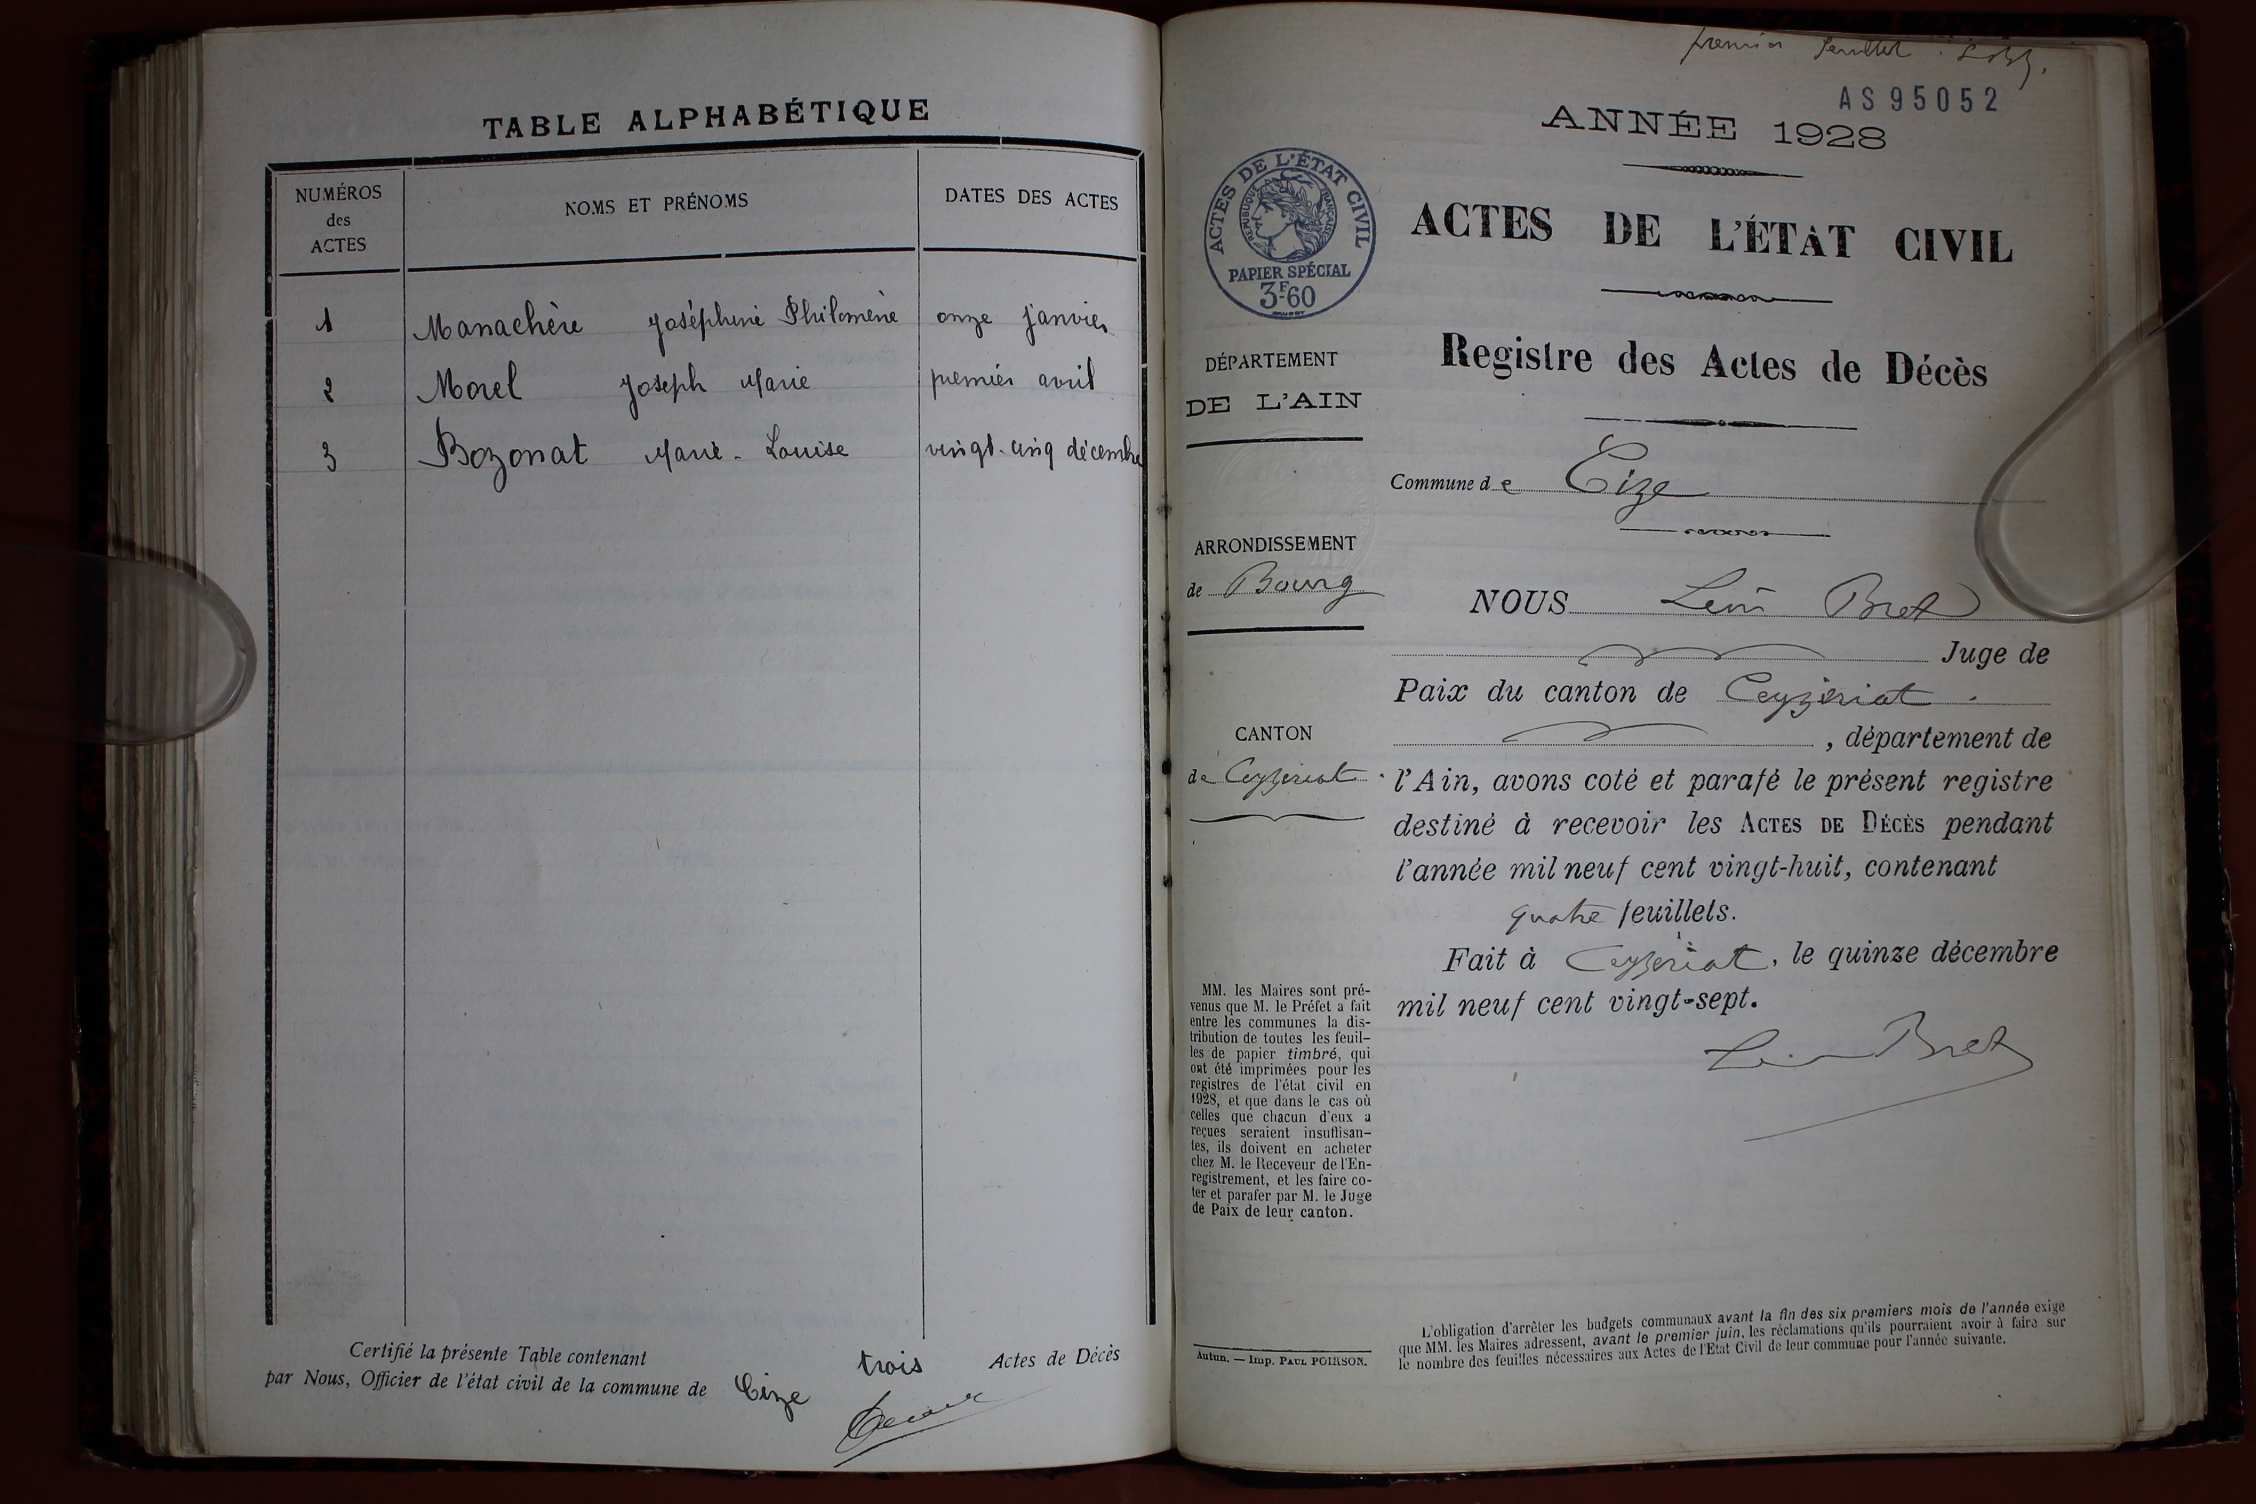 TABLE ALPHABÉTIQUE
NUMÉROS
des
ACTES
NOMS ET PRÉNOMS
DATES DES ACTES
1 Manachère Joséphine Philomène onze janvier
2 Morel Joseph Marie premier avril
3 Bozonat Marie-Louise vingt-cinq décembre
Certifié la présente Table contenant trois Actes de Décès
par Nous, Officier de l'état civil de la commune de Cize
premier feuillet.
AS 95052
ANNÉE 1928
ACTES DE L'ÉTAT CIVIL
RÉPUBLIQUE FRANÇAISE
PAPIER SPÉCIAL
3F60
ACTES DE L'ÉTAT CIVIL
Registre des Actes de Décès
DÉPARTEMENT
DE L'AIN
Commune de Cize
ARRONDISSEMENT
de Bourg
CANTON
de Ceyzériat
NOUS Léon Bret
Juge de
Paix du canton de Ceyzériat.
, département de
l'Ain, avons coté et parafé le présent registre
destiné à recevoir les ACTES DE DÉCÈS pendant
l'année mil neuf cent vingt-huit, contenant
quatre feuillets.
Fait à Ceyzériat, le quinze décembre
mil neuf cent vingt-sept.
Léon Bret
MM. les Maires sont pré-
venus que M. le Préfet a fait
entre les communes la dis-
tribution de toutes les feuil-
les de papier timbré, qui
ont été imprimées pour les
registres de l'état civil en
1928, et que dans le cas où
celles que chacun d'eux a
reçues seraient insuffisan-
tes, ils doivent en acheter
chez M. le Receveur de l'En-
registrement, et les faire co-
ter et parafer par M. le Juge
de Paix de leur canton.
Autun. — Imp. PAUL POIRSON.
L'obligation d'arrêter les budgets communaux avant la fin des six premiers mois de l'année exige
que MM. les Maires adressent, avant le premier juin, les réclamations qu'ils pourraient avoir à faire sur
le nombre des feuilles nécessaires aux Actes de l'Etat Civil de leur commune pour l'année suivante.